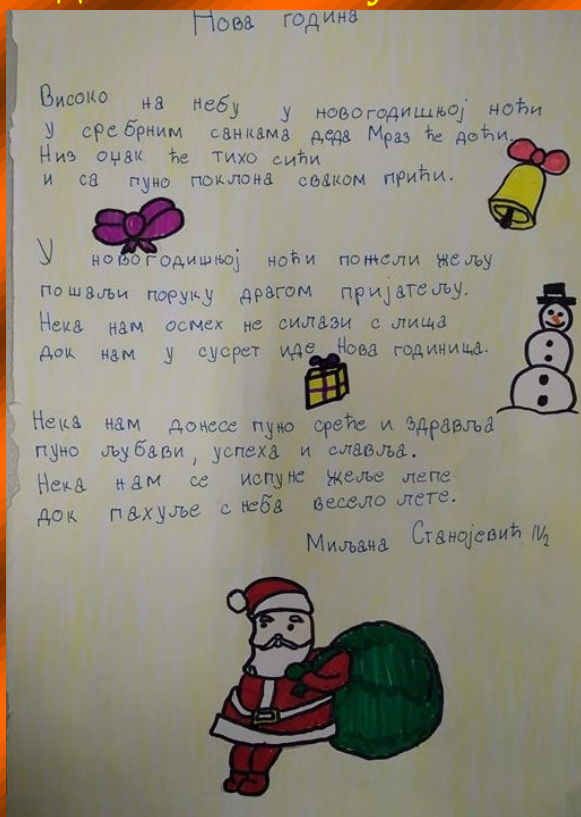 Нова година
Високо на небу у новогодишњој ноћи
у сребрним санкама деда Мраз ће доћи.
Низ оџак ће тихо сићи
и са пуно поклона сваком прићи.
У новогодишњој ноћи пожели жељу
пошаљи поруку драгом пријатељу.
Нека нам осмех не силази с лица
док нам у сусрет иде Нова годиница.
Нека нам донесе пуно среће и здравља
пуно љубави, успеха и славља.
Нека нам се испуне жеље лепе
док пахуље с неба весело лете.
Миљана Станојевић IV2